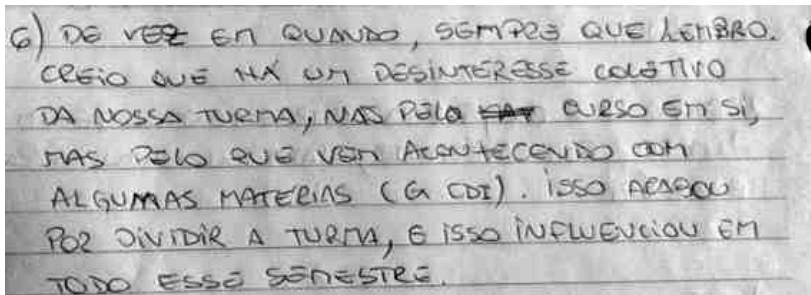 6) DE VEZ EM QUANDO, SEMPRE QUE LEMBRO.
CREIO QUE HÁ UM DESINTERESSE COLETIVO
DA NOSSA TURMA, NAS PELO CURSO EM SI,
MAS PELO QUE VEM ACONTECENDO COM
ALGUMAS MATERIAS (G CDI). ISSO ACABOU
POR DIVIDIR A TURMA, E ISSO INFLUENCIOU EM
TODO ESSE SEMESTRE.